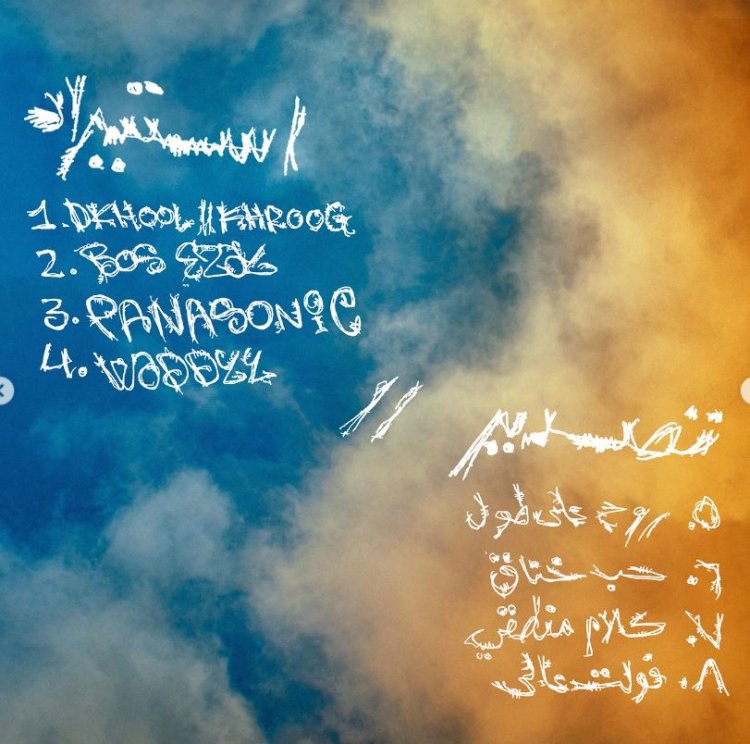 استيراد
1. DKHOOL // KHROOG
2. BOS
3. PANASONIC
4.
//
تصدير
٥. روح على طول
٦. حب خناق
٧. كلام منطقي
٨. فولت عالي